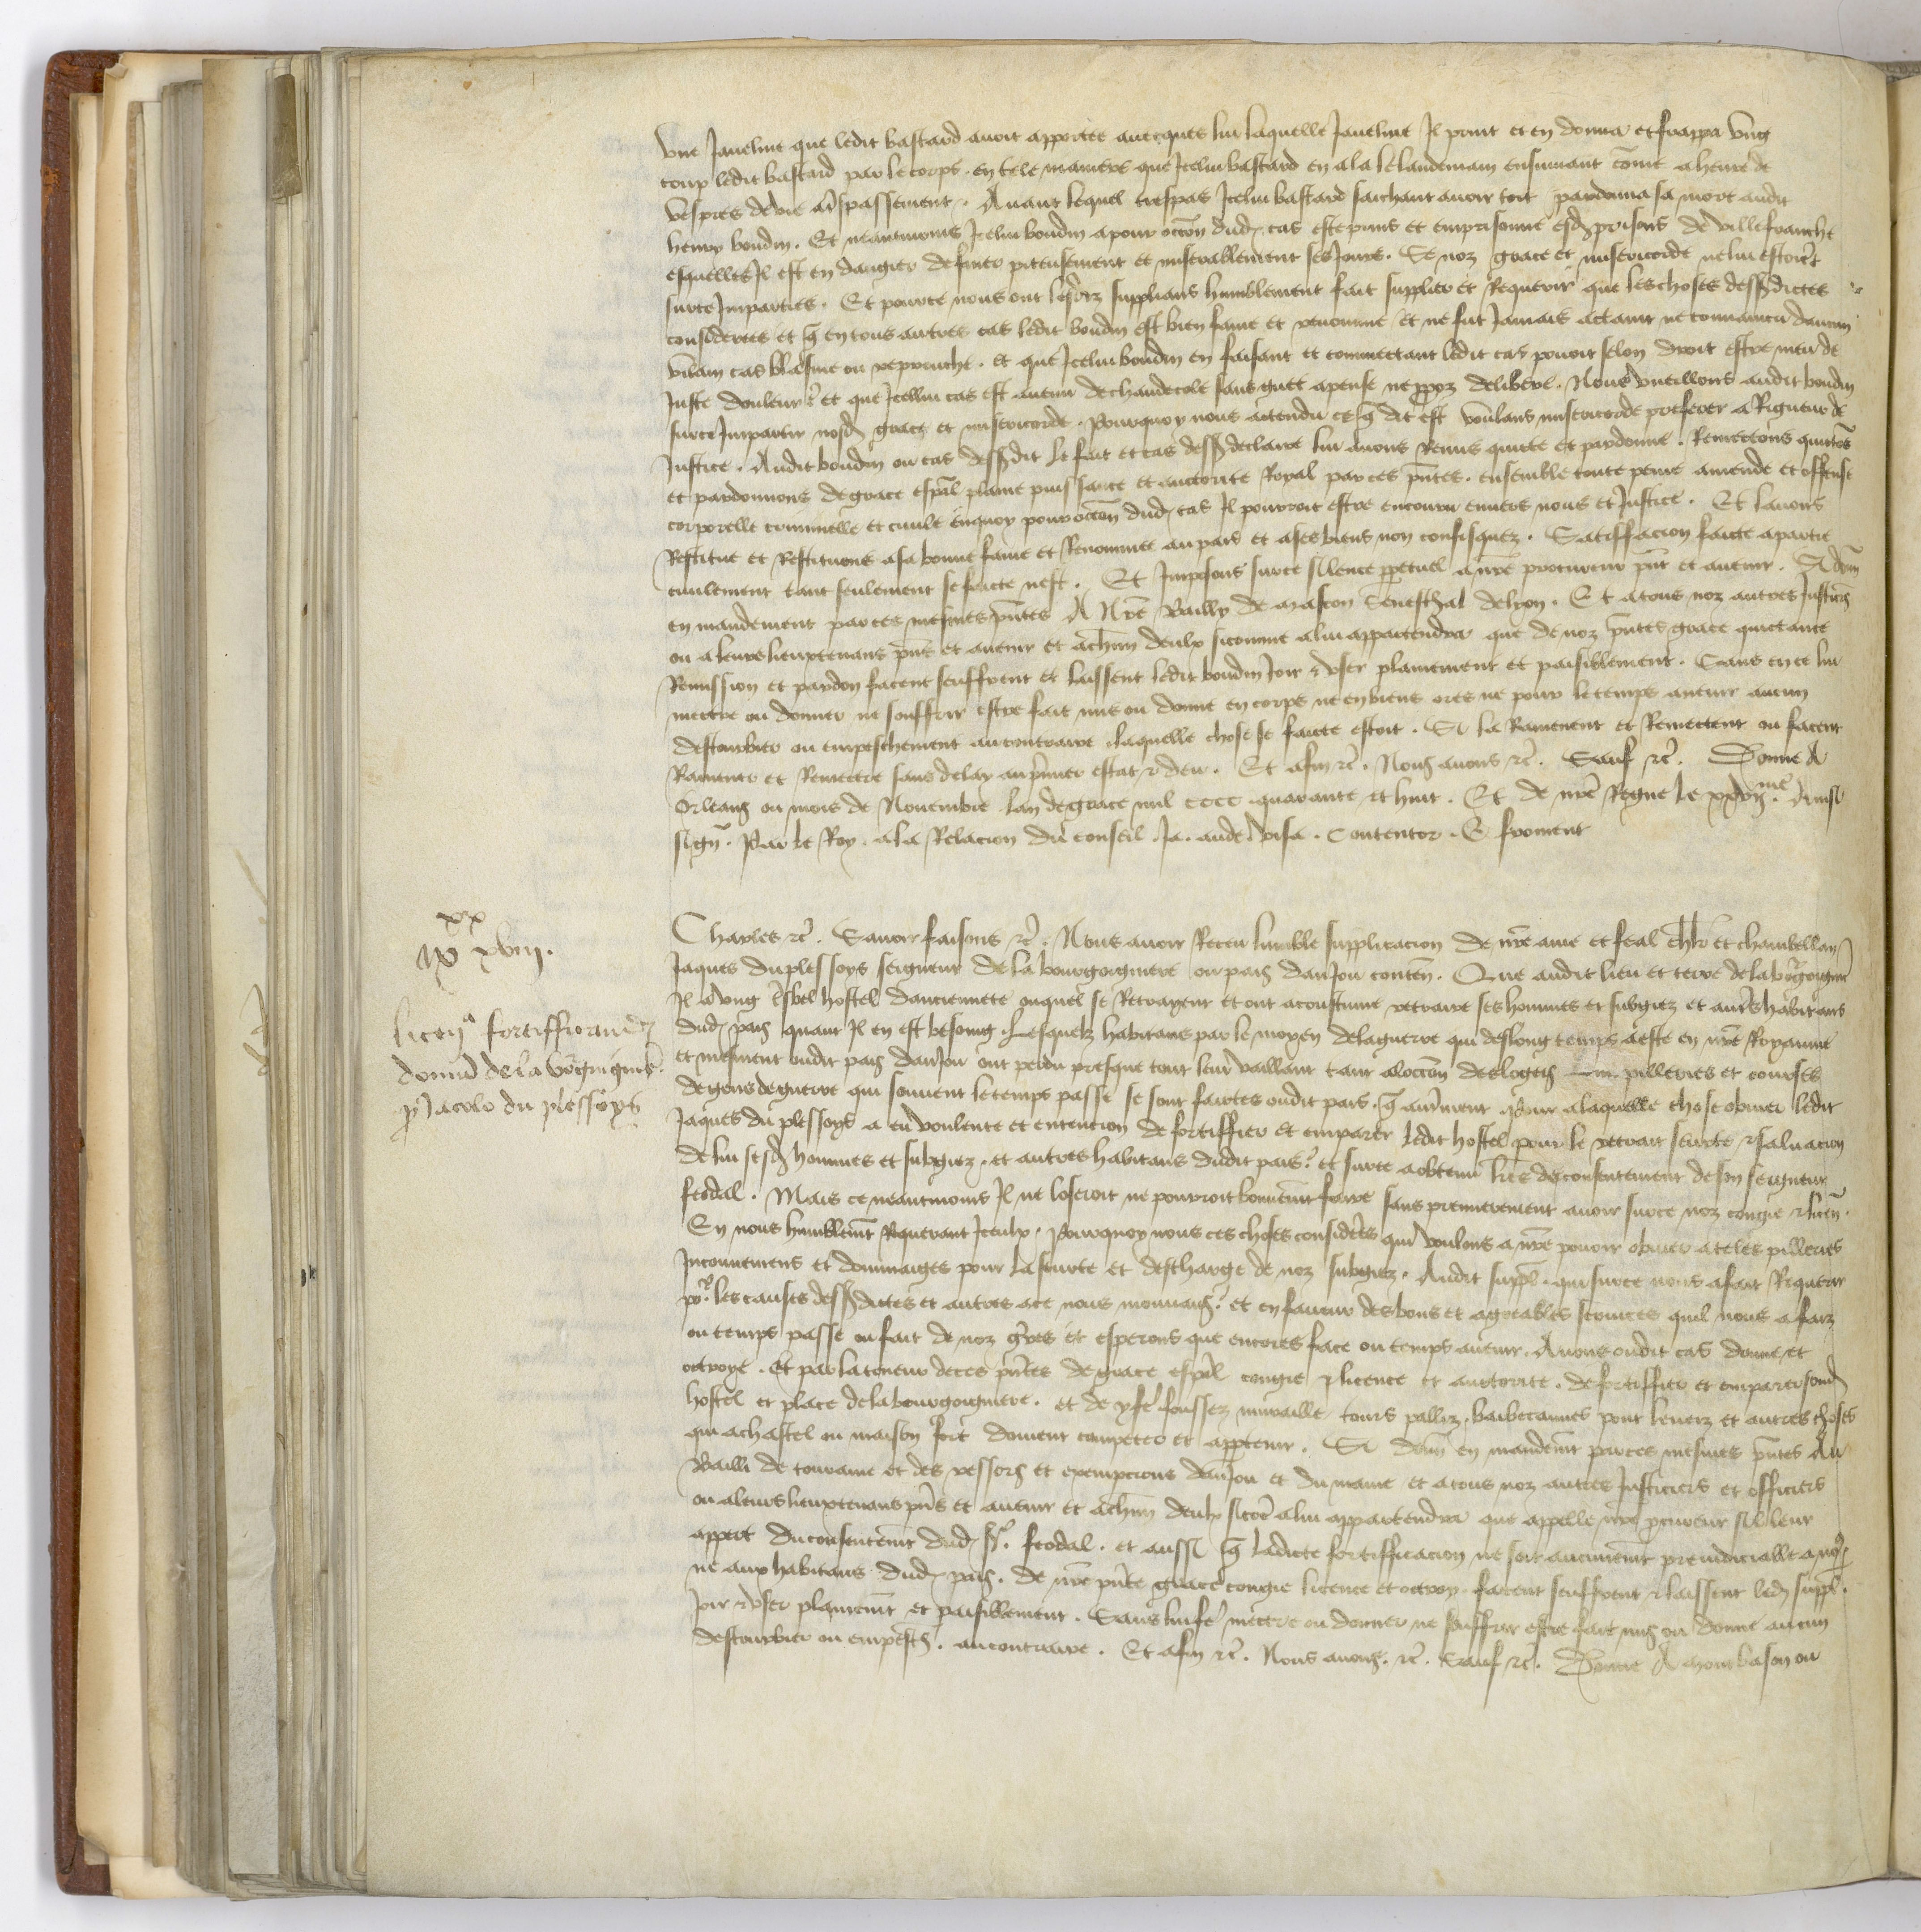 une Javeline que ledit bastard avoit apportee avecques lui laquelle Javeline Il print et en donna et frappa ung
coup ledit bastard par le corps. en tele maniere que Icelui bastard en ala le landemain ensuivant come a heure de
vespres de vie a trespassement. Avant lequel trespas Icelui bastard saichant avoir tort pardonna sa mort audit
henry boudin. Et neantmoins Icelui boudin a pour occon dud. cas este prins et emprisonne esd. prisons de villefranche
esquelles Il est en dangier de finer piteusement et miserablement ses Jours. Se noz grace et misericorde ne lui estoient
surce Imparties. Et pource nous ont lesd. supplians humblement fait supplier et Requerir que les choses dessusdictes
considerees et q en tous autres cas ledit boudin est bien fame et renomme et ne fut Jamais actaint ne convaincu daucun
vilain cas blasme ou reprouche. et que Icelui boudin en faisant et commectant ledit cas povoit selon droit estre meu de
Juste douleur et que Icellui cas est avenu de chaudecole sans guet apense ne ppoz delibere. Nous vueillons audit boudin
surce Impartir nosd. grace et misericorde. Pourquoy nous actendu ce q dit est voulans misericorde preferer a Rigueur de
Justice. Audit boudin ou cas dessusdit le fait et cas dessus declaire lui avons Remis quicte et pardonne. Remectons quictons
et pardonnons de grace espal plaine puissance et auctorite Royal par ces pntes. ensemble toute peine amende et offense
corporelle criminelle et civile enquoy pour occon dud. cas Il pourroit estre encouru envers nous et Justice. Et lavons
Restitue et Restituons a sa bonne fame et Renommee au pais et a ses biens non confisquez. Satiffacion faicte a partie
civilement tant seulement se faicte nest. Et Imposons surce silence perpetuel a nre procureur pnt et avenir. Si donn
en mandement par ces mesmes pntes A Nre Bailly de mascon Seneschal de lyon. Et a tous noz autres Justiciers
ou a leurs lieuxtenans pns et avenir et a chun deulx sicomme a lui appartendra que de noz pntes grace quictance
Remission et pardon facent seuffrent et laissent ledit boudin Joir et user plainement et paisiblement. Sans en ce lui
mectre ou donner ne souffrir estre fait mis ou donne en corps ne en biens ores ne pour le temps avenir aucun
destourbier ou empeschement au contraire. laquelle chose se faicte estoit. Si la Ramenent et Remectent ou facent
Ramener et Remectre sans delay au premier estat et deu. Et afin etc. Nous avons etc. Sauf etc. Donne A
Orleans ou mois de Novembre lan de grace mil cccc quarante et huit. Et de nre Regne le xxvii me. Ainsi
sign. Par le Roy. a la Relacion du conseil. Ja. aude. Visa. Contentor. E froment
Charles etc. Savoir faisons etc. Nous avoir Receu lumble supplicacion de nre ame et feal chlr et chambellan
Jaques du plessoys seigneur de la bourgoigniere ou pais danJou conten. Que audit lieu et terre de la bourgoigniere
Il a ung tresbel hostel danciennete ouquel se Retrayent et ont acoustume retraire ses hommes et subgiez et autres habitans
dud. pais quant Il en est besoing. Lesquelz habitans par le moyen de la guerre qui deslong temps a este en nre Royaume
et mesment oudit pais danJou ont perdu presque tout leur vaillant tant a loccon des logeis pilleries et courses
de gens de guerre qui souvent le temps passe se sont faictes oudit pais. q autrement. Pour a laquelle chose obvier ledit
Jaques du plessoys a eu voulente et entencion de fortiffier et emparer ledit hostel pour le retrait seurte et salvacion
de lui sesd. hommes et subgiez. et autres habitans dudit pais. et surce a obtenu lres de consentement de son seigneur
feodal. Mais ce neantmoins Il ne loseroit ne pourroit bonnement faire sans premierement avoir surce noz congie et licen.
En nous humblement Requerant Iceulx. Pourquoy nous ces choses considerees qui voulons a nre povoir obvier a teles pilleries
Inconveniens et dommaiges pour la seurte et descharge de noz subgiez. Audit suppl. qui surce nous a fait Requerir
pour les causes dessusdictes et autres a ce nous mouvans. et en faveur des bons et agreables services quil nous a faiz
ou temps passe ou fait de noz guerres et esperons que encores face ou temps avenir. Avons oudit cas donne et
octroye. Et par la teneur de ces pntes de grace espal congie licence et auctorite. de fortiffier et emparer sond.
hostel et place de la bourgoigniere. et de y fe foussez muraille tours palliz. barbecannes pont leveiz et autres choses
qui a chastel ou maison fort doivent competer et appartenir. Si donn en mandement par ces mesmes pntes Au
Bailli de touraine et des ressors et exempcions danJou et du maine et a tous noz autres Justiciers et officiers
ou a leurs lieuxtenans pns et avenir et a chun deulx sicome a lui appartendra que appelle nre procureur sil leur
appert du consentement dud. sr. feodal. et aussi q ladicte fortifficacion ne soit aucunement preiudiciable a nous
ne aux habitans dud. pais. de nre pnte grace congie licence et octroy. facent seuffrent et laissent led. suppl.
Joir et user plainement et paisiblement. Sans lui fe mectre ou donner ne souffrir estre fait mis ou donne aucun
destourbier ou empesch. au contraire. Et afin etc. Nous avons etc. Sauf etc. Donne A montbason ou
xx
ix xvii.
licen fortifficandi
domum de la bourgoigniere
p Jacobo du plessoys